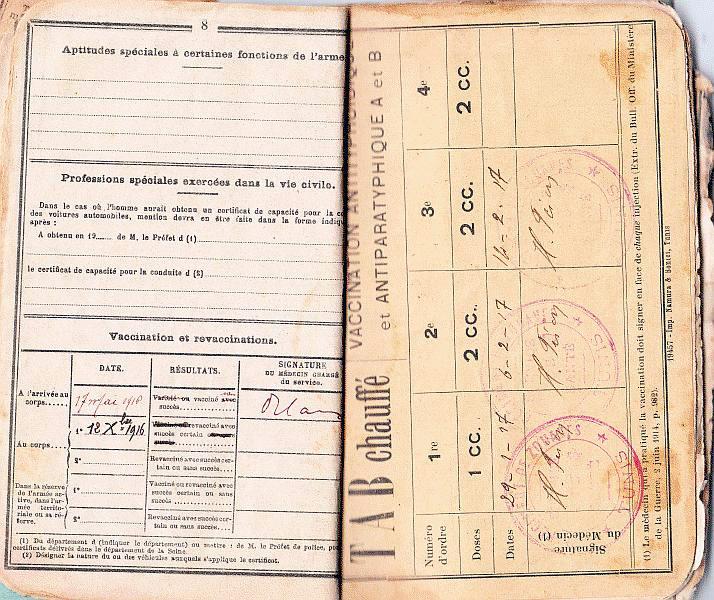 8
Aptitudes spéciales à certaines fonctions de l'arme
Professions spéciales exercées dans la vie civile.
Dans le cas où l'homme aurait obtenu un certificat de capacité pour la co
des voitures automobiles, mention devra en être faite dans la forme indiq
après :
A obtenu en 19..... de M. le Préfet d (1)
le certificat de capacité pour la conduite d (2)
Vaccination et revaccinations.
DATE.
RÉSULTATS.
SIGNATURE
DU MÉDECIN CHARGÉ
du service.
A l'arrivée au
corps.....
17 mai 1916
vacciné avec
succès
Au corps....
1°
12 Xbre 1916
revacciné avec
succès certain
2°
Revacciné avec succès cer-
tain ou sans succès....
Dans la réserve
de l'armée ac-
tive, dans l'ar-
mée territo-
riale ou sa ré-
serve.
1°
Vacciné ou revacciné avec
succès certain ou sans
succès
2°
Revacciné avec succès cer-
tain ou sans succès.
(1) Du département d (indiquer le département) ou mettre : de M. le Préfet de police, pou
certificats délivrés dans le département de la Seine.
(2) Désigner la nature du ou des véhicules auxquels s'applique le certificat.
VACCINATION ANTITYPHOIDIQUE
et ANTIPARATYPHIQUE A et B
T A B chauffé
Numéro
d'ordre
1re
2e
3e
4e
Doses
1 CC.
2 CC.
2 CC.
2 CC.
Dates
29-1-17
6-2-17
16-2-17
Signature
du Médecin (1)
ZOUAVES
TUNIS
(1) Le médecin qui a pratiqué la vaccination doit signer en face de chaque injection (Extr. du Bull. Off. du Ministère
de la Guerre, 2 juin 1914, p. 982).
19457 - Imp. Namura & Bonici, Tunis